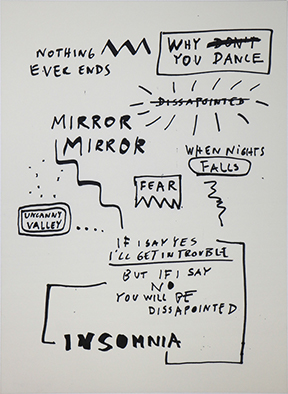 NOTHING
EVER ENDS
WHY DON'T
YOU DANCE
DISSAPOINTED
MIRROR
MIRROR
WHEN NIGHTS
FALLS
FEAR
UNCANNY
VALLEY
IF I SAY YES
I'LL GET IN TROUBLE
BUT IF I SAY
NO
YOU WILL BE
DISSAPOINTED
INSOMNIA